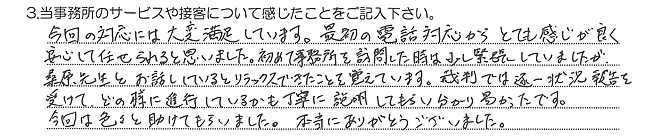 3.当事務所のサービスや接客について感じたことをご記入下さい。
今回の対応には大変満足しています。最初の電話対応からとても感じが良く
安心して任せられると思いました。初めて事務所を訪問した時は少し緊張していましたが
桑原先生とお話ししているとリラックスできたことを覚えています。裁判では逐一状況報告を
受けて、どの様に進行しているかも丁寧に説明してもらい分かり易かったです。
今回は色々と助けてもらいました。本当にありがとうございました。